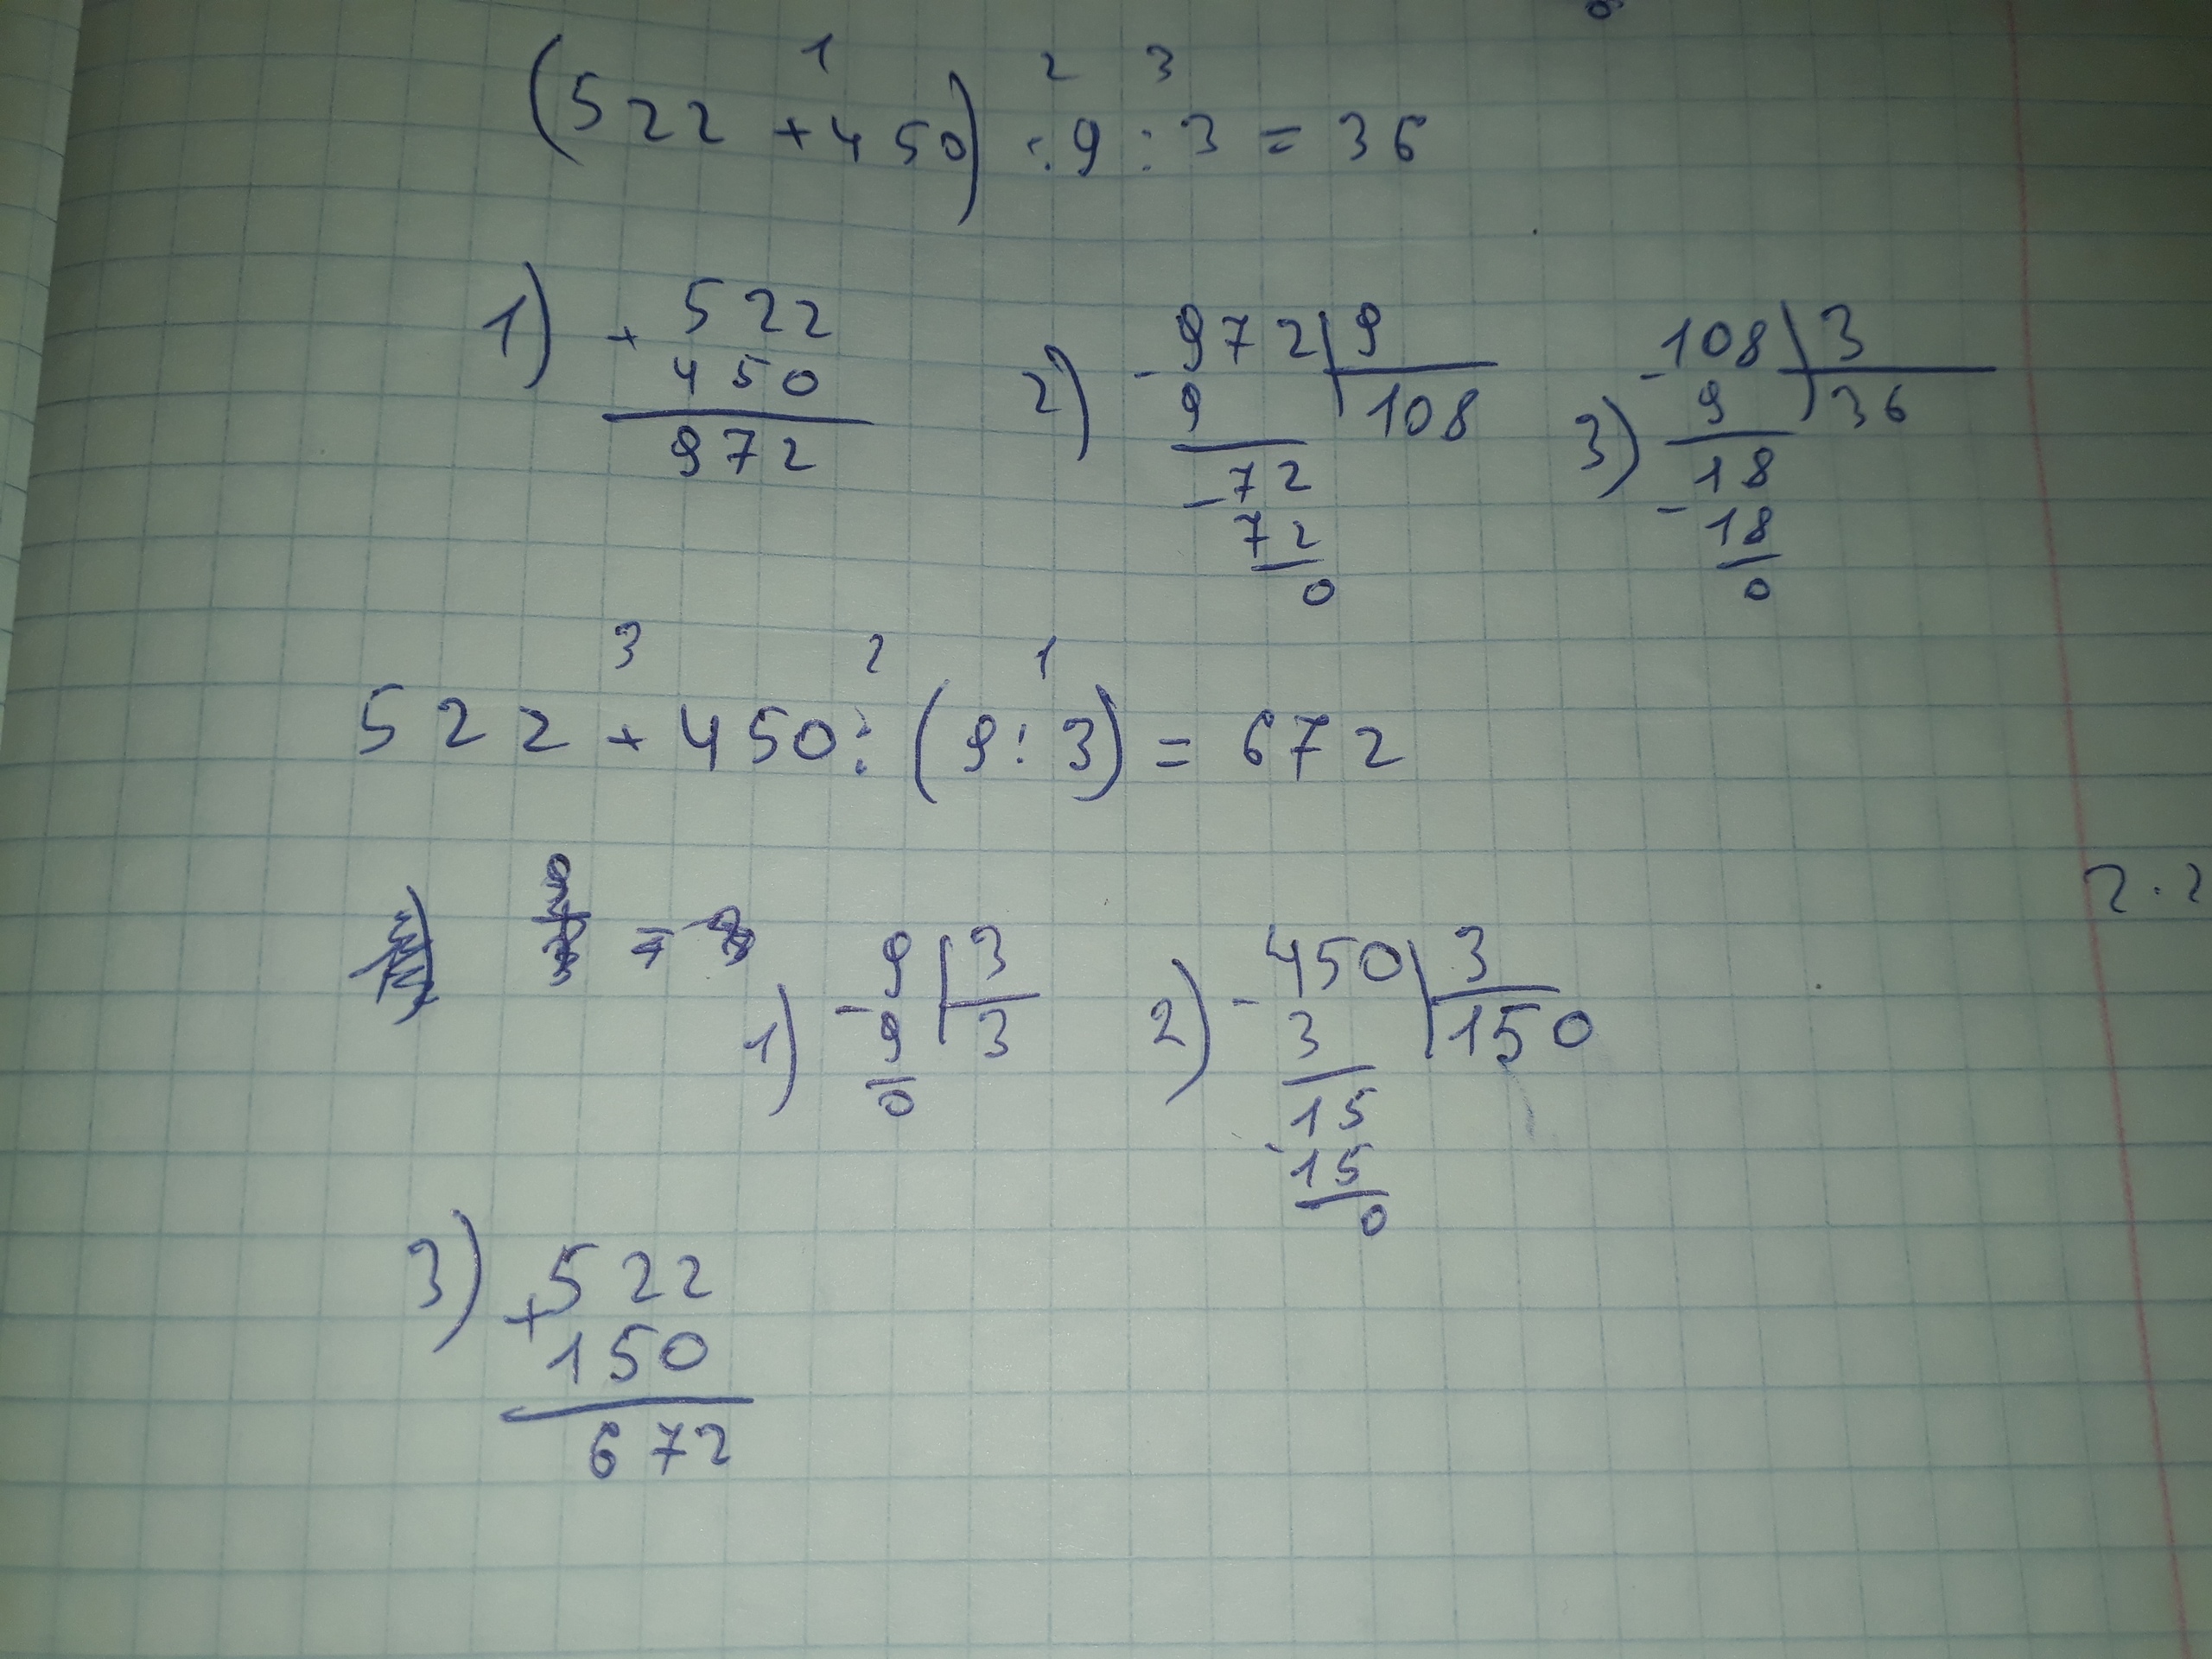 1 2 3
(522 + 450) : 9 : 3 = 36
1) + 522
450
972
2) - 972 | 9
9 108
- 72
72
0
3) - 108 | 3
9 36
18
- 18
0
3 2 1
522 + 450 : (9 : 3) = 672
1) - 9 | 3
9 3
0
2) - 450 | 3
3 150
15
- 15
0
2 . 2
3) + 522
150
672